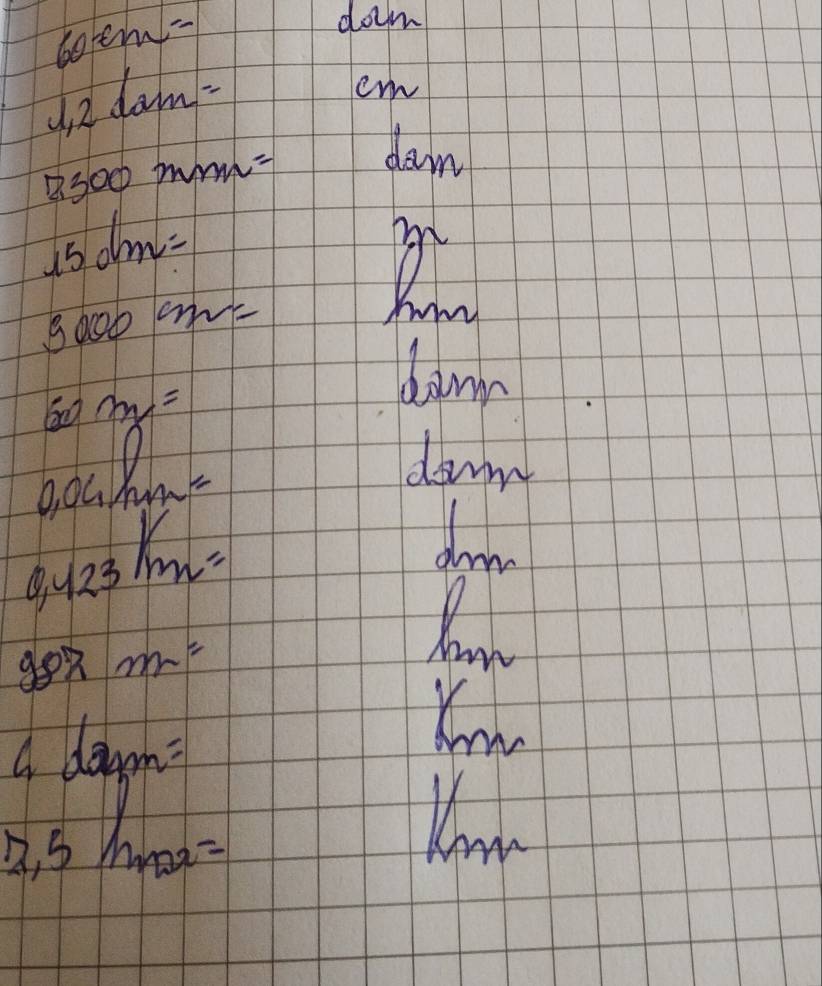 60 cm= dam
1,2 dam= cm
7300 mm= dam
15 dm= m
9000 cm= hm
60 m= dam
0,04 hm= dam
0,423 Km= dm
987 m= hm
4 dam= Km
7,5 hm= Km